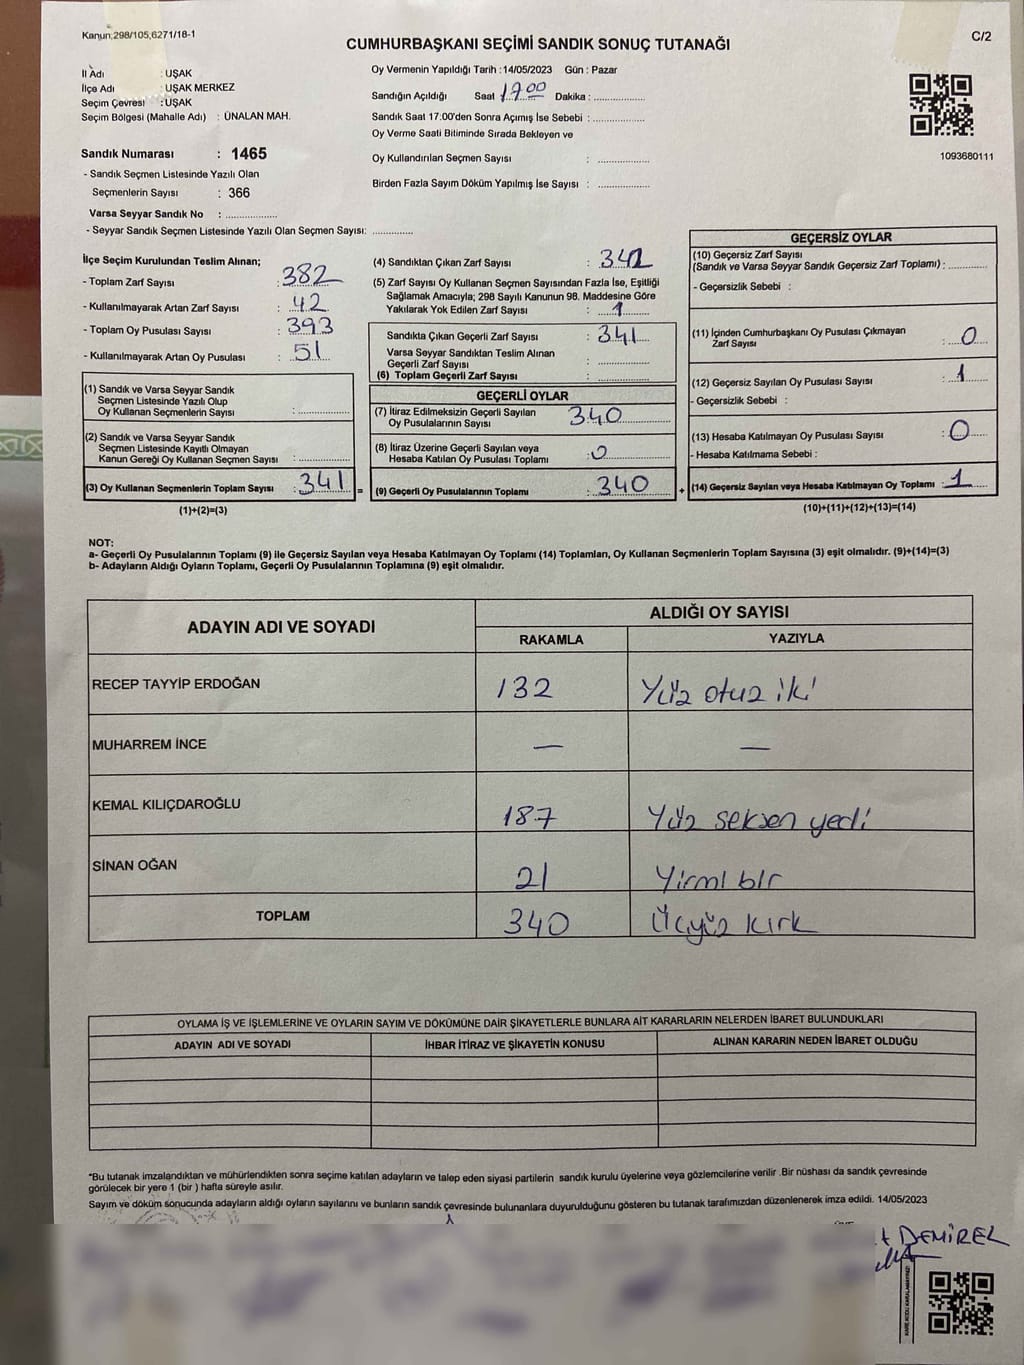 Kanun;298/105,6271/18-1
C/2
CUMHURBAŞKANI SEÇİMİ SANDIK SONUÇ TUTANAĞI
İl Adı : UŞAK
İlçe Adı : UŞAK MERKEZ
Seçim Çevresi : UŞAK
Seçim Bölgesi (Mahalle Adı) : ÜNALAN MAH.
Sandık Numarası : 1465
- Sandık Seçmen Listesinde Yazılı Olan
Seçmenlerin Sayısı : 366
Varsa Seyyar Sandık No : ................
- Seyyar Sandık Seçmen Listesinde Yazılı Olan Seçmen Sayısı: ............
Oy Vermenin Yapıldığı Tarih : 14/05/2023 Gün : Pazar
Sandığın Açıldığı Saat 17.00 Dakika : ................
Sandık Saat 17.00'den Sonra Açımış İse Sebebi : ................
Oy Verme Saati Bitiminde Sırada Bekleyen ve
Oy Kullandırılan Seçmen Sayısı : ................
Birden Fazla Sayım Döküm Yapılmış İse Sayısı : ................
1093680111
İlçe Seçim Kurulundan Teslim Alınan;
- Toplam Zarf Sayısı : 382
- Kullanılmayarak Artan Zarf Sayısı : 42
- Toplam Oy Pusulası Sayısı : 393
- Kullanılmayarak Artan Oy Pusulası : 51
(1) Sandık ve Varsa Seyyar Sandık
Seçmen Listesinde Yazılı Olup
Oy Kullanan Seçmenlerin Sayısı : ................
(2) Sandık ve Varsa Seyyar Sandık
Seçmen Listesinde Kayıtlı Olmayan
Kanun Gereği Oy Kullanan Seçmen Sayısı : ................
(3) Oy Kullanan Seçmenlerin Toplam Sayısı : 341 =
(1)+(2)=(3)
(4) Sandıktan Çıkan Zarf Sayısı : 342
(5) Zarf Sayısı Oy Kullanan Seçmen Sayısından Fazla İse, Eşitliği
Sağlamak Amacıyla; 298 Sayılı Kanunun 98. Maddesine Göre
Yakılarak Yok Edilen Zarf Sayısı : 1
Sandıkta Çıkan Geçerli Zarf Sayısı : 341
Varsa Seyyar Sandıktan Teslim Alınan
Geçerli Zarf Sayısı : ................
(6) Toplam Geçerli Zarf Sayısı : ................
GEÇERLİ OYLAR
(7) İtiraz Edilmeksizin Geçerli Sayılan
Oy Pusulalarının Sayısı 340
(8) İtiraz Üzerine Geçerli Sayılan veya
Hesaba Katılan Oy Pusulası Toplamı : 0
(9) Geçerli Oy Pusulalarının Toplamı : 340 +
GEÇERSİZ OYLAR
(10) Geçersiz Zarf Sayısı
(Sandık ve Varsa Seyyar Sandık Geçersiz Zarf Toplamı) : ............
- Geçersizlik Sebebi :
(11) İçinden Cumhurbaşkanı Oy Pusulası Çıkmayan
Zarf Sayısı : 0
(12) Geçersiz Sayılan Oy Pusulası Sayısı : 1
- Geçersizlik Sebebi :
(13) Hesaba Katılmayan Oy Pusulası Sayısı : 0
- Hesaba Katılmama Sebebi :
(14) Geçersiz Sayılan veya Hesaba Katılmayan Oy Toplamı : 1
(10)+(11)+(12)+(13)=(14)
NOT:
a- Geçerli Oy Pusulalarının Toplamı (9) ile Geçersiz Sayılan veya Hesaba Katılmayan Oy Toplamı (14) Toplamları, Oy Kullanan Seçmenlerin Toplam Sayısına (3) eşit olmalıdır. (9)+(14)=(3)
b- Adayların Aldığı Oyların Toplamı, Geçerli Oy Pusulalarının Toplamına (9) eşit olmalıdır.
ADAYIN ADI VE SOYADI
ALDIĞI OY SAYISI
RAKAMLA YAZIYLA
RECEP TAYYİP ERDOĞAN 132 Yüz otuz iki
MUHARREM İNCE — —
KEMAL KILIÇDAROĞLU 187 Yüz seksen yedi
SİNAN OĞAN 21 Yirmi bir
TOPLAM 340 Üçyüz kırk
OYLAMA İŞ VE İŞLEMLERİNE VE OYLARIN SAYIM VE DÖKÜMÜNE DAİR ŞİKAYETLERLE BUNLARA AİT KARARLARIN NELERDEN İBARET BULUNDUKLARI
ADAYIN ADI VE SOYADI İHBAR İTİRAZ VE ŞİKAYETİN KONUSU ALINAN KARARIN NEDEN İBARET OLDUĞU
*Bu tutanak imzalandıktan ve mühürlendikten sonra seçime katılan adayların ve talep eden siyasi partilerin sandık kurulu üyelerine veya gözlemcilerine verilir .Bir nüshası da sandık çevresinde
görülecek bir yere 1 (bir ) hafta süreyle asılır.
Sayım ve döküm sonucunda adayların aldığı oyların sayılarını ve bunların sandık çevresinde bulunanlara duyurulduğunu gösteren bu tutanak tarafımızdan düzenlenerek imza edildi. 14/05/2023
DEMİREL